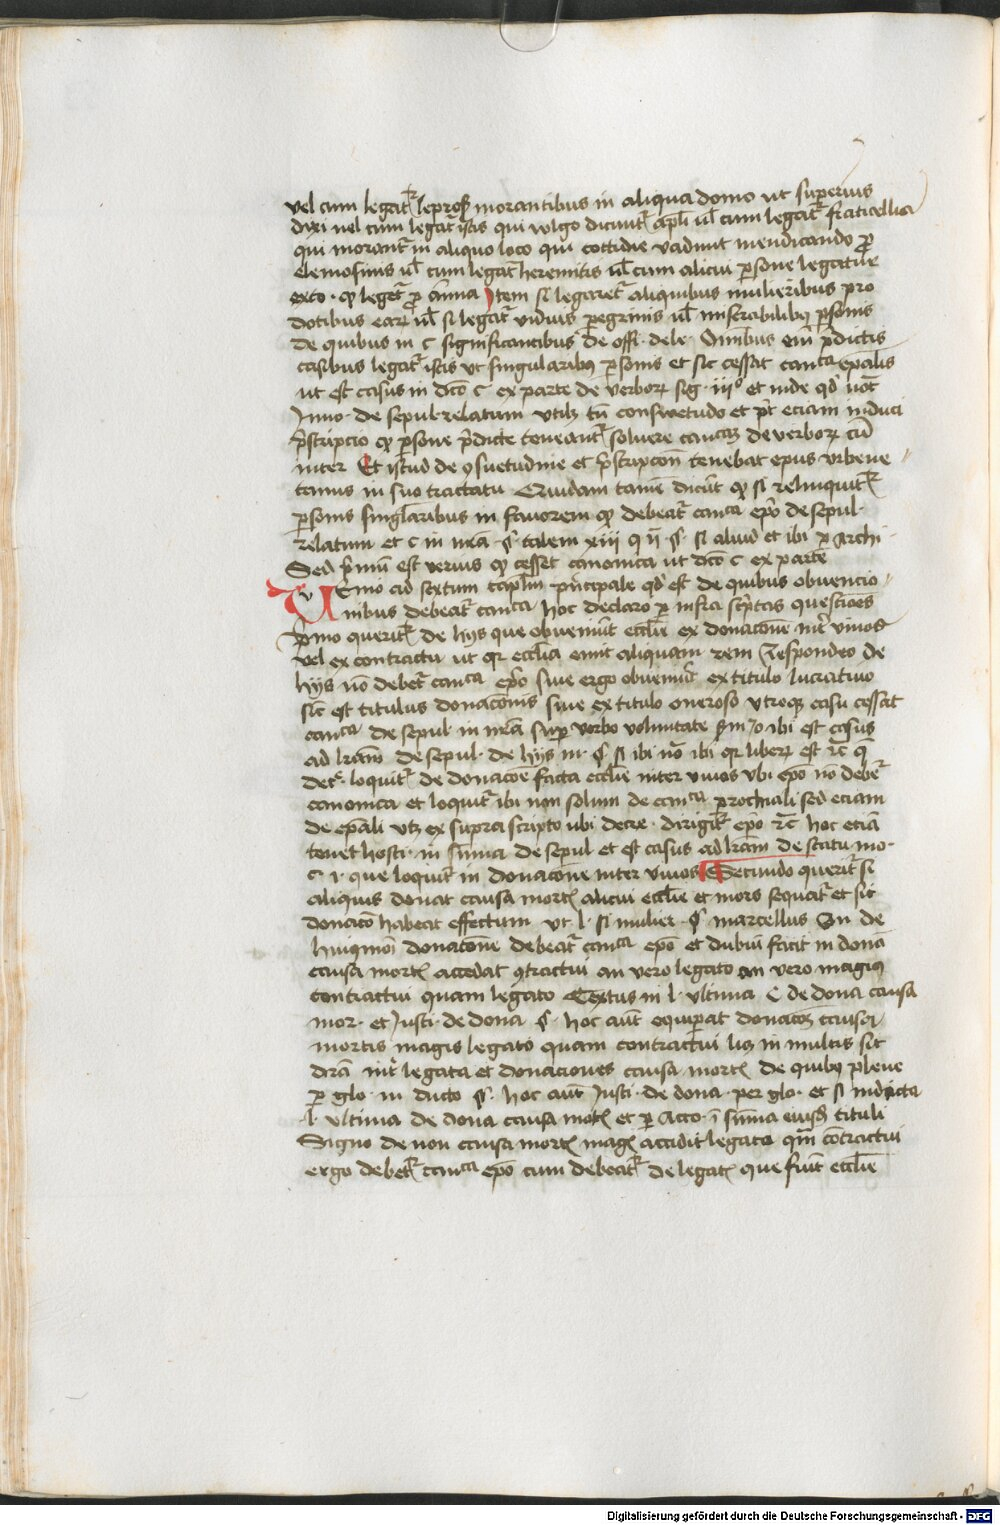 vel cum legat᷑ leprosis morantibus in aliqua domo ut superius
dixi vel cum legat᷑ istis qui volgo dicunt᷑ apl̄i ul̄ cum legat᷑ fraticellis
qui morant᷑ in aliquo loco qui cottidie vadunt mendicando ꝓ
elemosinis ul̄ cum legat᷑ heremitis ul̄ cum alicui ꝑsone legatur
ꝙ leget᷑ ꝓ anima Item si legaret᷑ aliquibus mulieribus pro
dotibus earꝝ ul̄ si legat᷑ viduis ꝑegrinis ul̄ miserabilibꝰ ꝑsonis
de quibus in c significantibus de offi · dele · Omībus eīm p̄dictis
casibus legat᷑ istis ut singularibꝰ ꝑsonis et sic cessat canca ep̄alis
ut est casus in dc̄o c ex parte de verborꝝ sig · iijº et inde qd̄ not̄
Inno · de sepul · relatum tn̄ consuetudo et eciam induci
p̄scripcio ꝙ ꝑsone p̄dicte teneant᷑ soluere de verborꝝ cū
inter Et istud de ꝯsuetudine et p̄scripcōn tenebat epus urbeue
tanus in suo tractatu Quidam tamē dicūt ꝙ si relinquit᷑
ꝑsonis singl̄aribus in fauorem ꝙ debeat᷑ canca ep̄o de sepul ·
relatum et c in nr̄a · § · talem xiij q ij § · si aliud et ibi ꝑ Archi ·
Sed p̄mū est verius ꝙ cesset canonica ut dc̄o c ex parte
VEnio ad sextum capl̄m p̄ncipale qd̄ est de quibus obuencio
nibus debeat᷑ canca hoc declaro ꝑ infra sc̄ptas questiōes
p̄mo querit᷑ de hijs que obueniūt eccl̄ie ex donacōne int̄ viuos
vel ex contractu ut qꝛ eccl̄ia emit aliquam rem Respondeo de
hijs nō debet᷑ canca ep̄o siue ergo obueniūt ex titulo lucratiuo
sic̄ est titulus donacōnis siue ex titulo oneroso utroqꝫ casu cessat
canca de sepul · in nr̄a suꝑ verbo voluntate ibi est casus
ad lr̄am de sepul · de hijs in · § · si ibi nō ibi qꝛ liberꝝ est
det᷑ · loquit᷑ de donacōe facta eccl̄ie inter viuos ubi ep̄o nō debet᷑
canonica et loquit᷑ ibi non solum de canca ꝑrochiali sed eciam
de ep̄ali utꝫ ex supra scripto ubi decre · dirigit᷑ ep̄o hoc etiā
tenet hosti · in sūma de sepul et est casus ad lr̄am de statu mo ·
c · i · que loquit᷑ in donacōne inter viuos Secundo querit᷑ si
aliquis donat causa mortꝭ alicui eccl̄ie et mors sequat᷑ et sic
donacō habeat effectum ut l · si mulier · § · marcellus An de
huiꝯmōi donacōne debeat᷑ canca ep̄o et dubiū facit in donā
causa mortꝭ accedat ꝯtractui an vero legato an vero magis
contractui quam legato Textus in l · ultima C de dona causa
mor · et Insti · de dona § · hoc aūt equiꝑat donacōꝫ causa
mortis magis legato quam contractui licꝫ in multis sit
dr̄a int̄ legata et donaciones causa mortꝭ de quibꝰ plene
ꝑ glo · in dicto § · hoc aūt Insti · de dona · per glo · et si indicta
l · ultima de dona causa mortꝭ et ꝑ Acco · ī sūma eiusdē tituli
Signo de non causa mortꝭ magꝭ accidit legato qm̄ cōtractui
ergo debet᷑ canca ep̄o cum debeat᷑ de legatꝭ que fiūt eccl̄ie
Digitalisierung gefördert durch die Deutsche Forschungsgemeinschaft - DFG